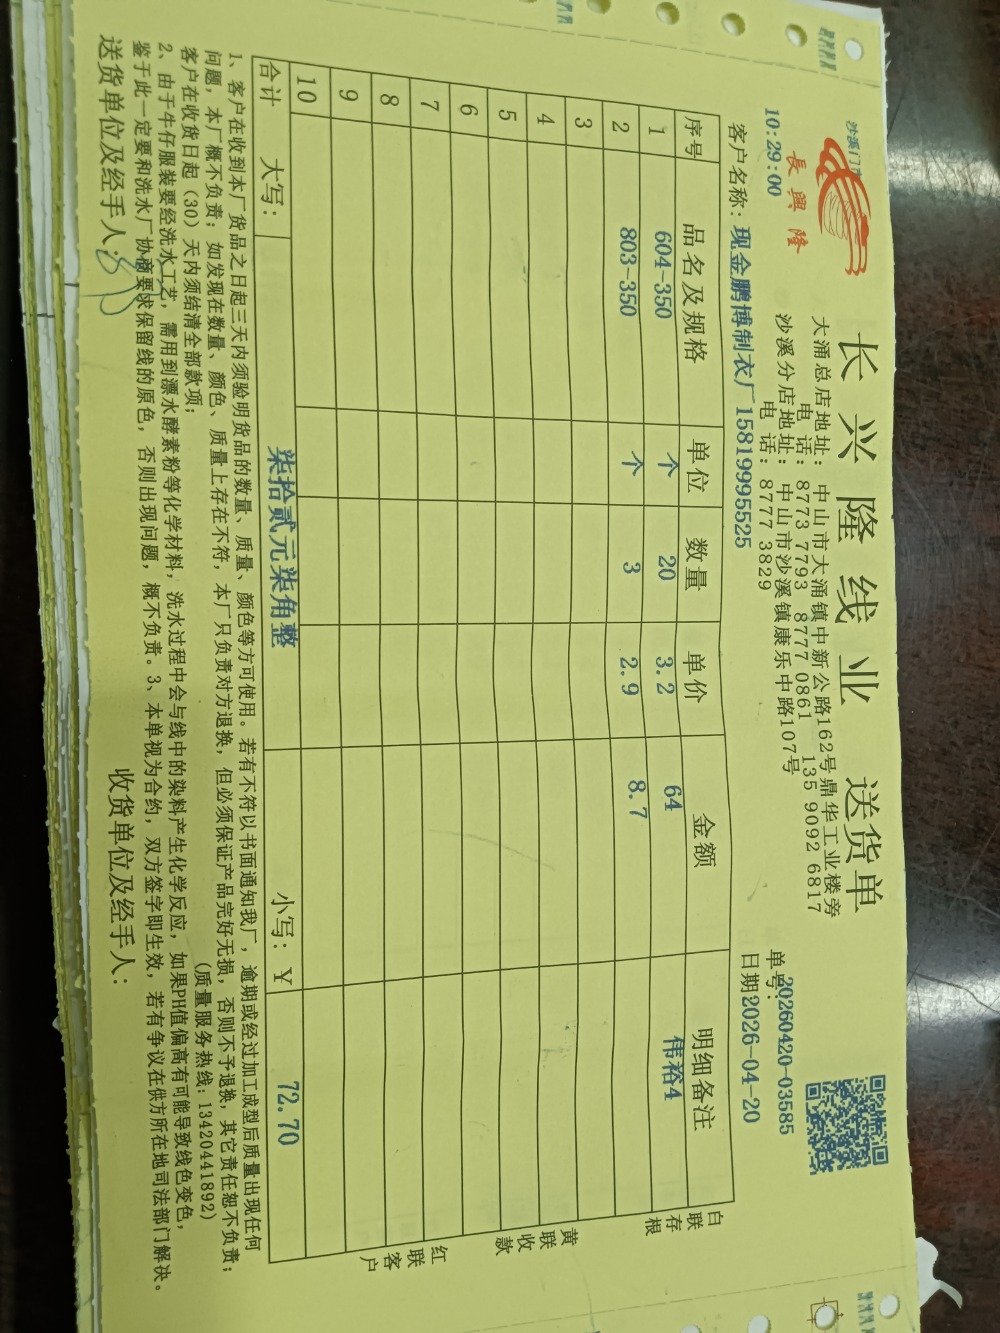 沙溪门市
長興隆
长兴隆线业 送货单
大涌总店地址：中山市大涌镇中新公路162号鼎华工业楼旁
电 话：8773 7793 8777 0861 135 9092 6817
沙溪分店地址：中山市沙溪镇康乐中路107号
电 话：8777 3829
单号：20260420-03585
10:29:00
客户名称：现金鹏博制衣厂15819995525 日期2026-04-20
序号 品名及规格 单位 数量 单价 金额 明细备注
1 604-350 个 20 3.2 64 伟裕4
2 803-350 个 3 2.9 8.7
3
4
5
6
7
8
9
10
合计 大写：柒拾贰元柒角整 小写：￥ 72.70
白联存根
黄联收款
红联客户
1、客户在收到本厂货品之日起三天内须验明货品的数量、质量、颜色等方可使用。若有不符以书面通知我厂，逾期或经过加工成型后质量出现任何
问题，本厂概不负责；如发现在数量、颜色、质量上存在不符，本厂只负责对方退换，但必须保证产品完好无损，否则不予退换，其它责任恕不负责；
客户在收货日起（30）天内须结清全部款项； （质量服务热线：13420441892）
2、由于牛仔服装要经洗水工艺，需用到漂水酵素粉等化学材料，洗水过程中会与线中的染料产生化学反应，如果PH值偏高有可能导致线色变色，
鉴于此一定要和洗水厂协商要求保留线的原色，否则出现问题，概不负责。3、本单视为合约，双方签字即生效，若有争议在供方所在地司法部门解决。
送货单位及经手人： 收货单位及经手人：